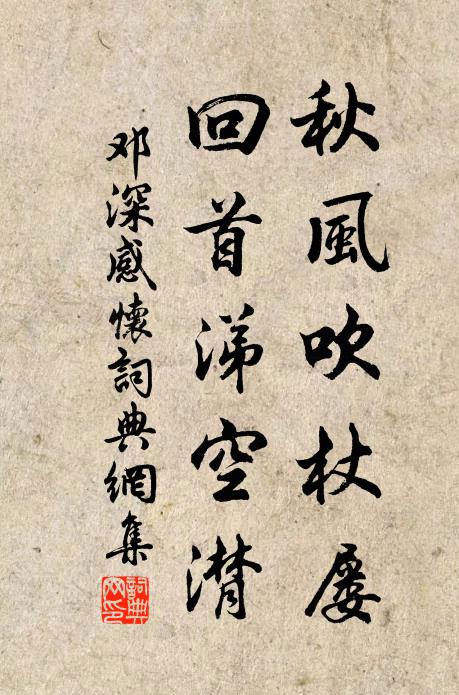 秋風吹杖屨
回首涕空潸
邓深感懷詞典網集
詞典網印